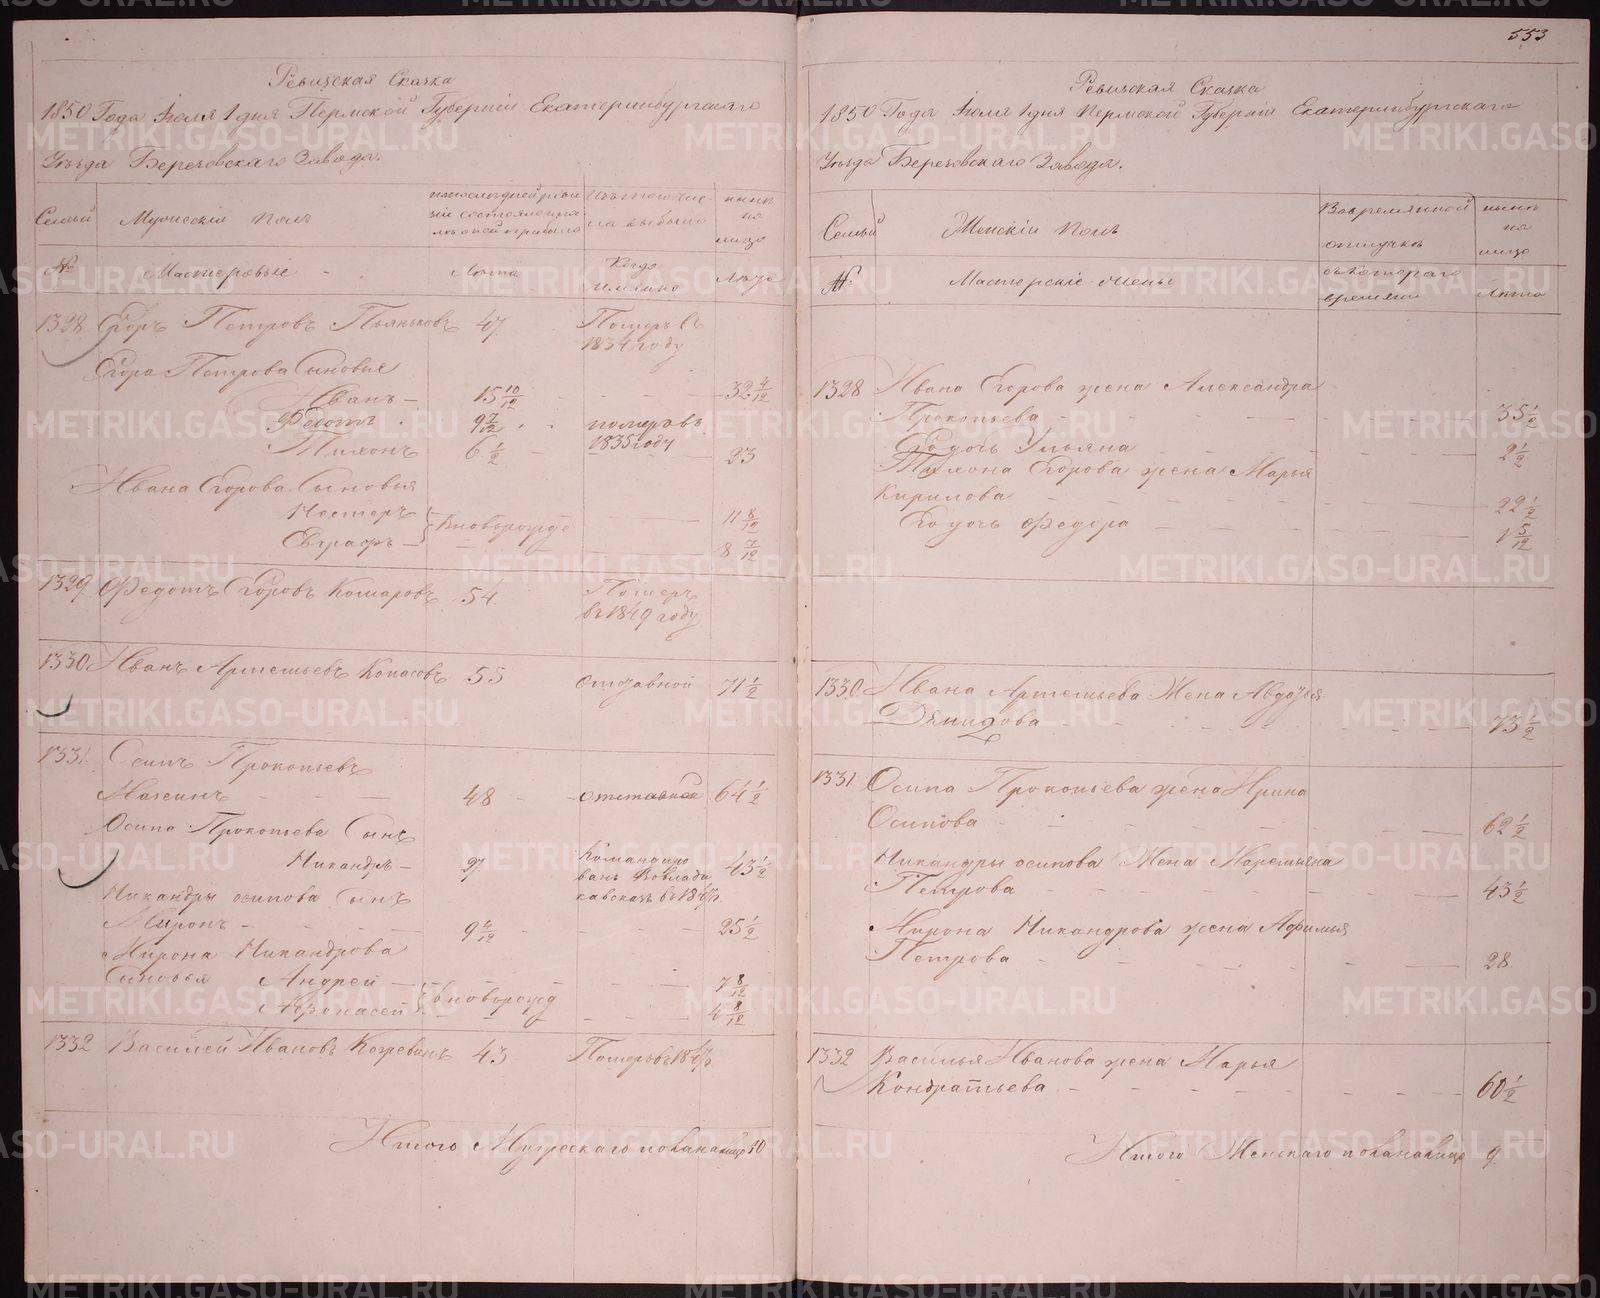 Ревизская Сказка
1850 Года Іюля 1 дня Пермской Губерніи Екатеринбургскаго
Уѣзда Березовскаго Завода.
Семьи
Мужескій полъ
Изъ того числа выбыло
нынѣ на лицо
№
Мастеровые
Лѣта
Когда именно
Лѣта
1328 Егоръ Петровъ Пьянковъ 47 Померъ въ 1834 году
Егора Петрова Сыновья
Иванъ — 15 10/12 - - - 32 4/12
Федотъ 9 7/12 померъ въ 1835 году
Тихонъ 6 1/2 - 23
Ивана Егорова Сыновья
Нестеръ } вноворожде 11 8/12
Евграфъ — 8 7/12
1329 Федотъ Егоровъ Комаровъ 54 Померъ въ 1849 году
1330 Иванъ Артемьевъ Копасовъ 55 отставной 71 1/2
1331 Осипъ Прокопьевъ
48 - отставной 64 1/2
Осипа Прокопьева Сынъ
Никандръ — 27 Командированъ Вовладикавсказъ въ 1847 г. 43 1/2
Никандры осипова Сынъ
Миронъ - - 9 4/12 - - - 25 1/2
Мирона Никандрова
Сыновья Андрей — 7 8/12
Афонасей } вноворожд 4 8/12
1332 Василей Ивановъ 43 Померъ въ 1847 г.
Итого Мужескаго пола на лицо 10
553
Ревизская Сказка
1850 Года Іюля 1 дня Пермской Губерніи Екатеринбургскаго
Уѣзда Березовскаго Завода.
Семьи
Женскій полъ
Вовременной отлучкѣ
нынѣ на лицо
№
Мастерскіе жены
съ котораго времени
Лѣта
1328 Ивана Егорова жена Александра
Прокопьева - - - 35 1/2
Его дочь Ульяна - - - 2 1/2
Тихона Егорова жена Марья
Кирилова - - - 22 1/2
Его дочь Федора - - - 1 5/12
1330 Ивана Артемьева Жена Авдотья
Демидова - - - 73 1/2
1331 Осипа Прокопьева жена Ирина
Осипова - - - 62 1/2
Никандры осипова Жена Маремьяна
Петрова - - - 43 1/2
Мирона Никандрова жена Афимья
Петрова - - - 28
1332 Василья Иванова жена Марья
Кондратьева - - - 60 1/2
Итого Женскаго пола на лицо 9
METRIKI.GASO-URAL.RU